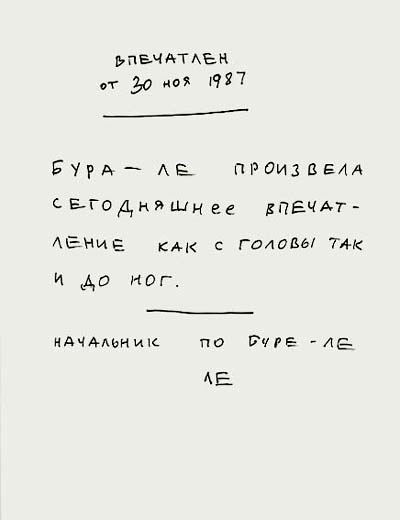 ВПЕЧАТЛЕН
от 30 ноя 1987
БУРА — ЛЕ ПРОИЗВЕЛА
СЕГОДНЯШНее ВПЕЧАТ-
ЛЕНИЕ КАК С ГОЛОВЫ ТАК
И ДО НОГ.
НАЧАЛЬНИК ПО БУРЕ-ЛЕ
ЛЕ